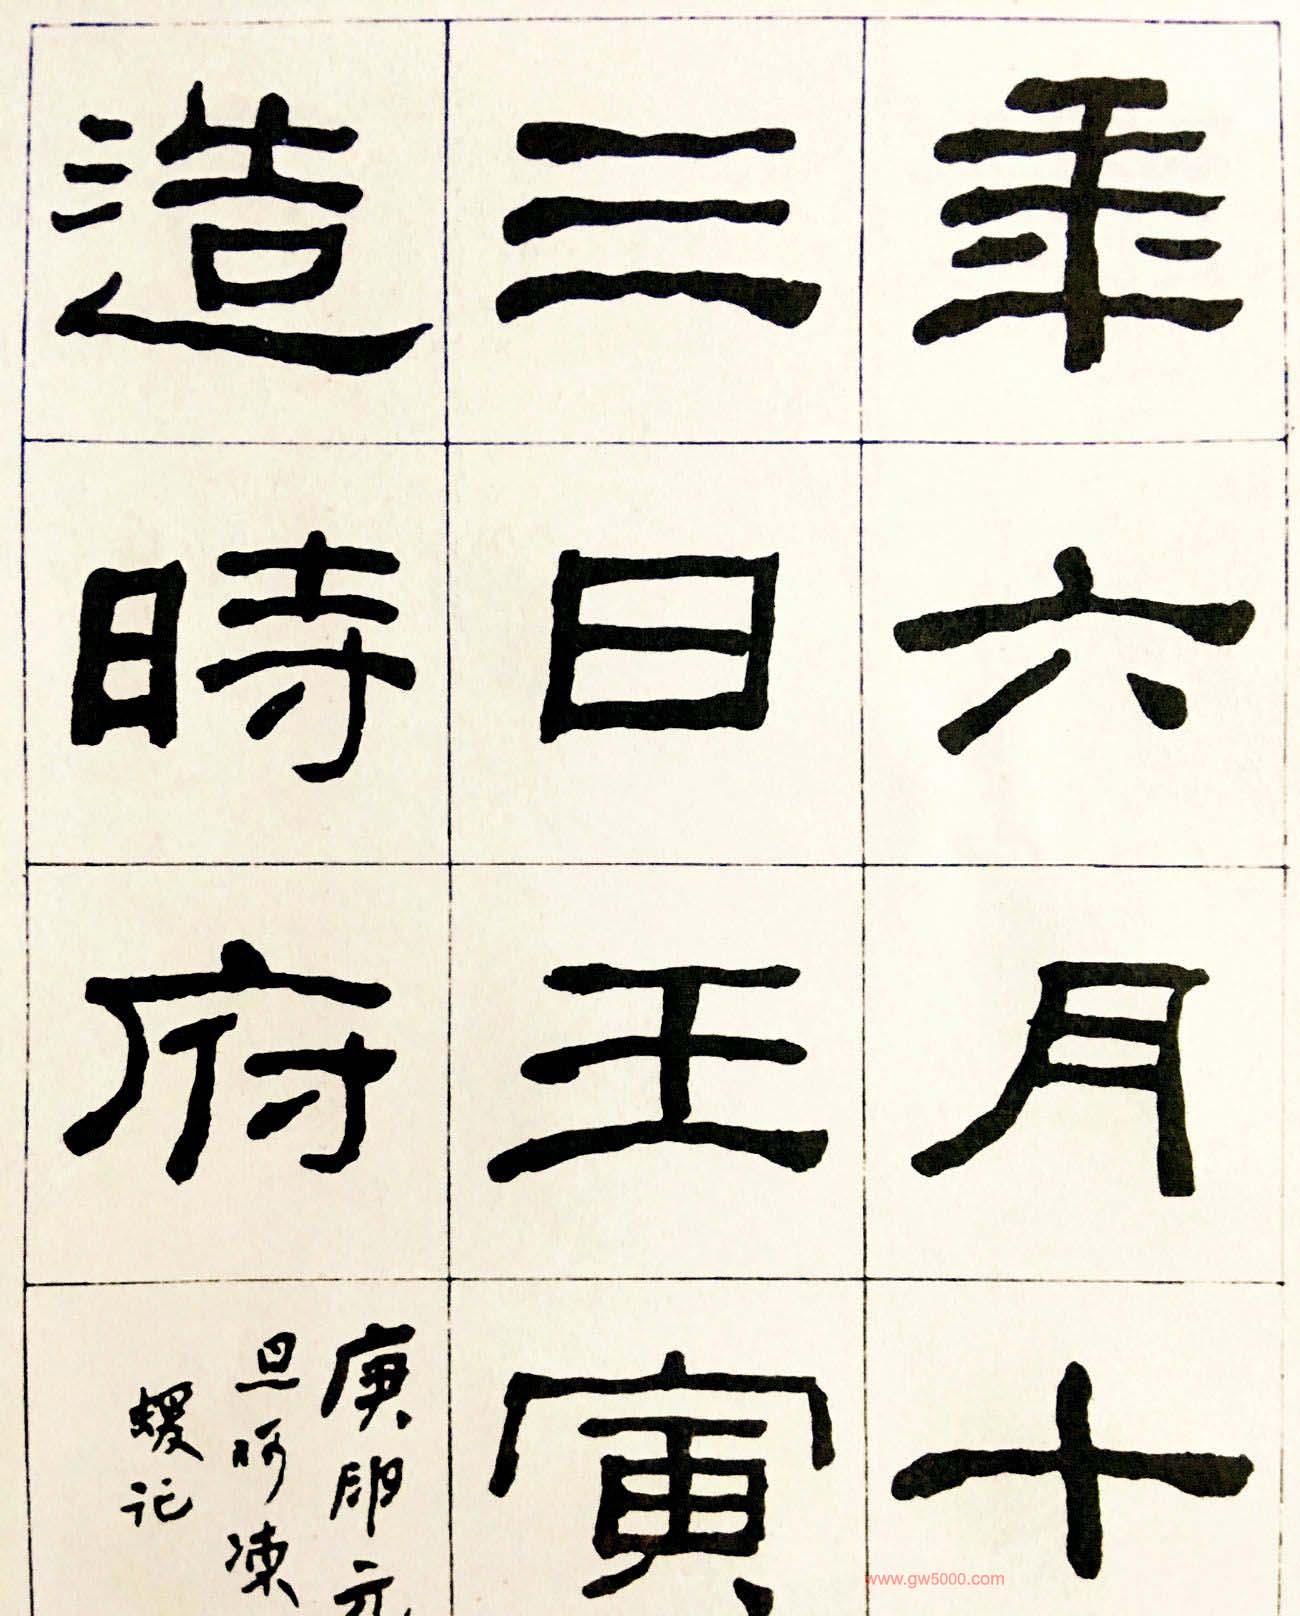 年六月十
三日壬寅
造時府
庚元
旦呵凍
蝯記
www.gw5000.com